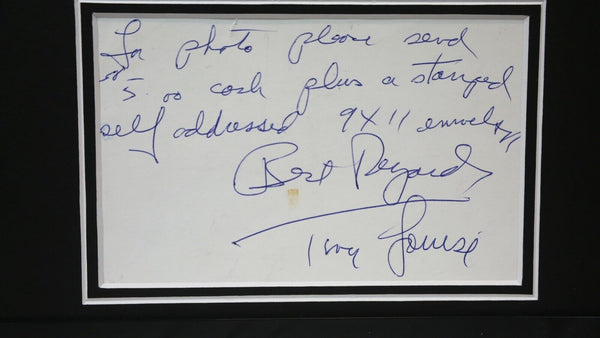 For photo please send
$5.00 cash plus a stamped
self addressed 9X11 envelope
Best Regards
Tina Louise